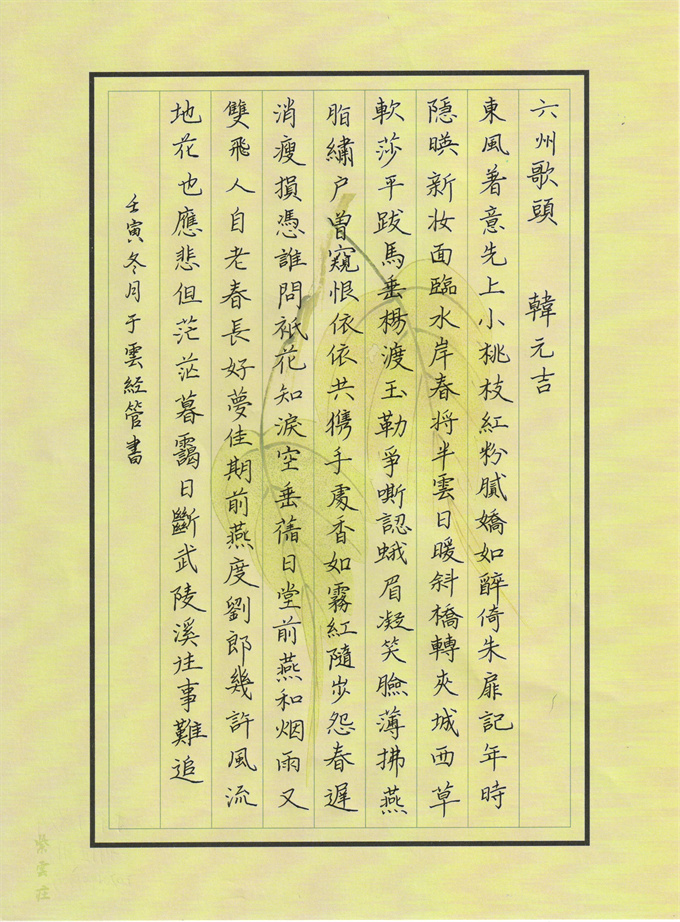 六州歌頭 韓元吉
東風著意先上小桃枝紅粉膩嬌如醉倚朱扉記年時
隱暎新妝面臨水岸春將半雲日暖斜橋轉夾城西草
軟莎平跋馬垂楊渡玉勒爭嘶認蛾眉凝笑臉薄拂燕
脂繡户曾窺恨依依共攜手處香如霧紅隨步怨春遲
消瘦損憑誰問衹花知淚空垂舊日堂前燕和烟雨又
雙飛人自老春長好夢佳期前燕度劉郎幾許風流
地花也應悲但茫茫暮靄日斷武陵溪往事難追
壬寅冬月于雲經管書